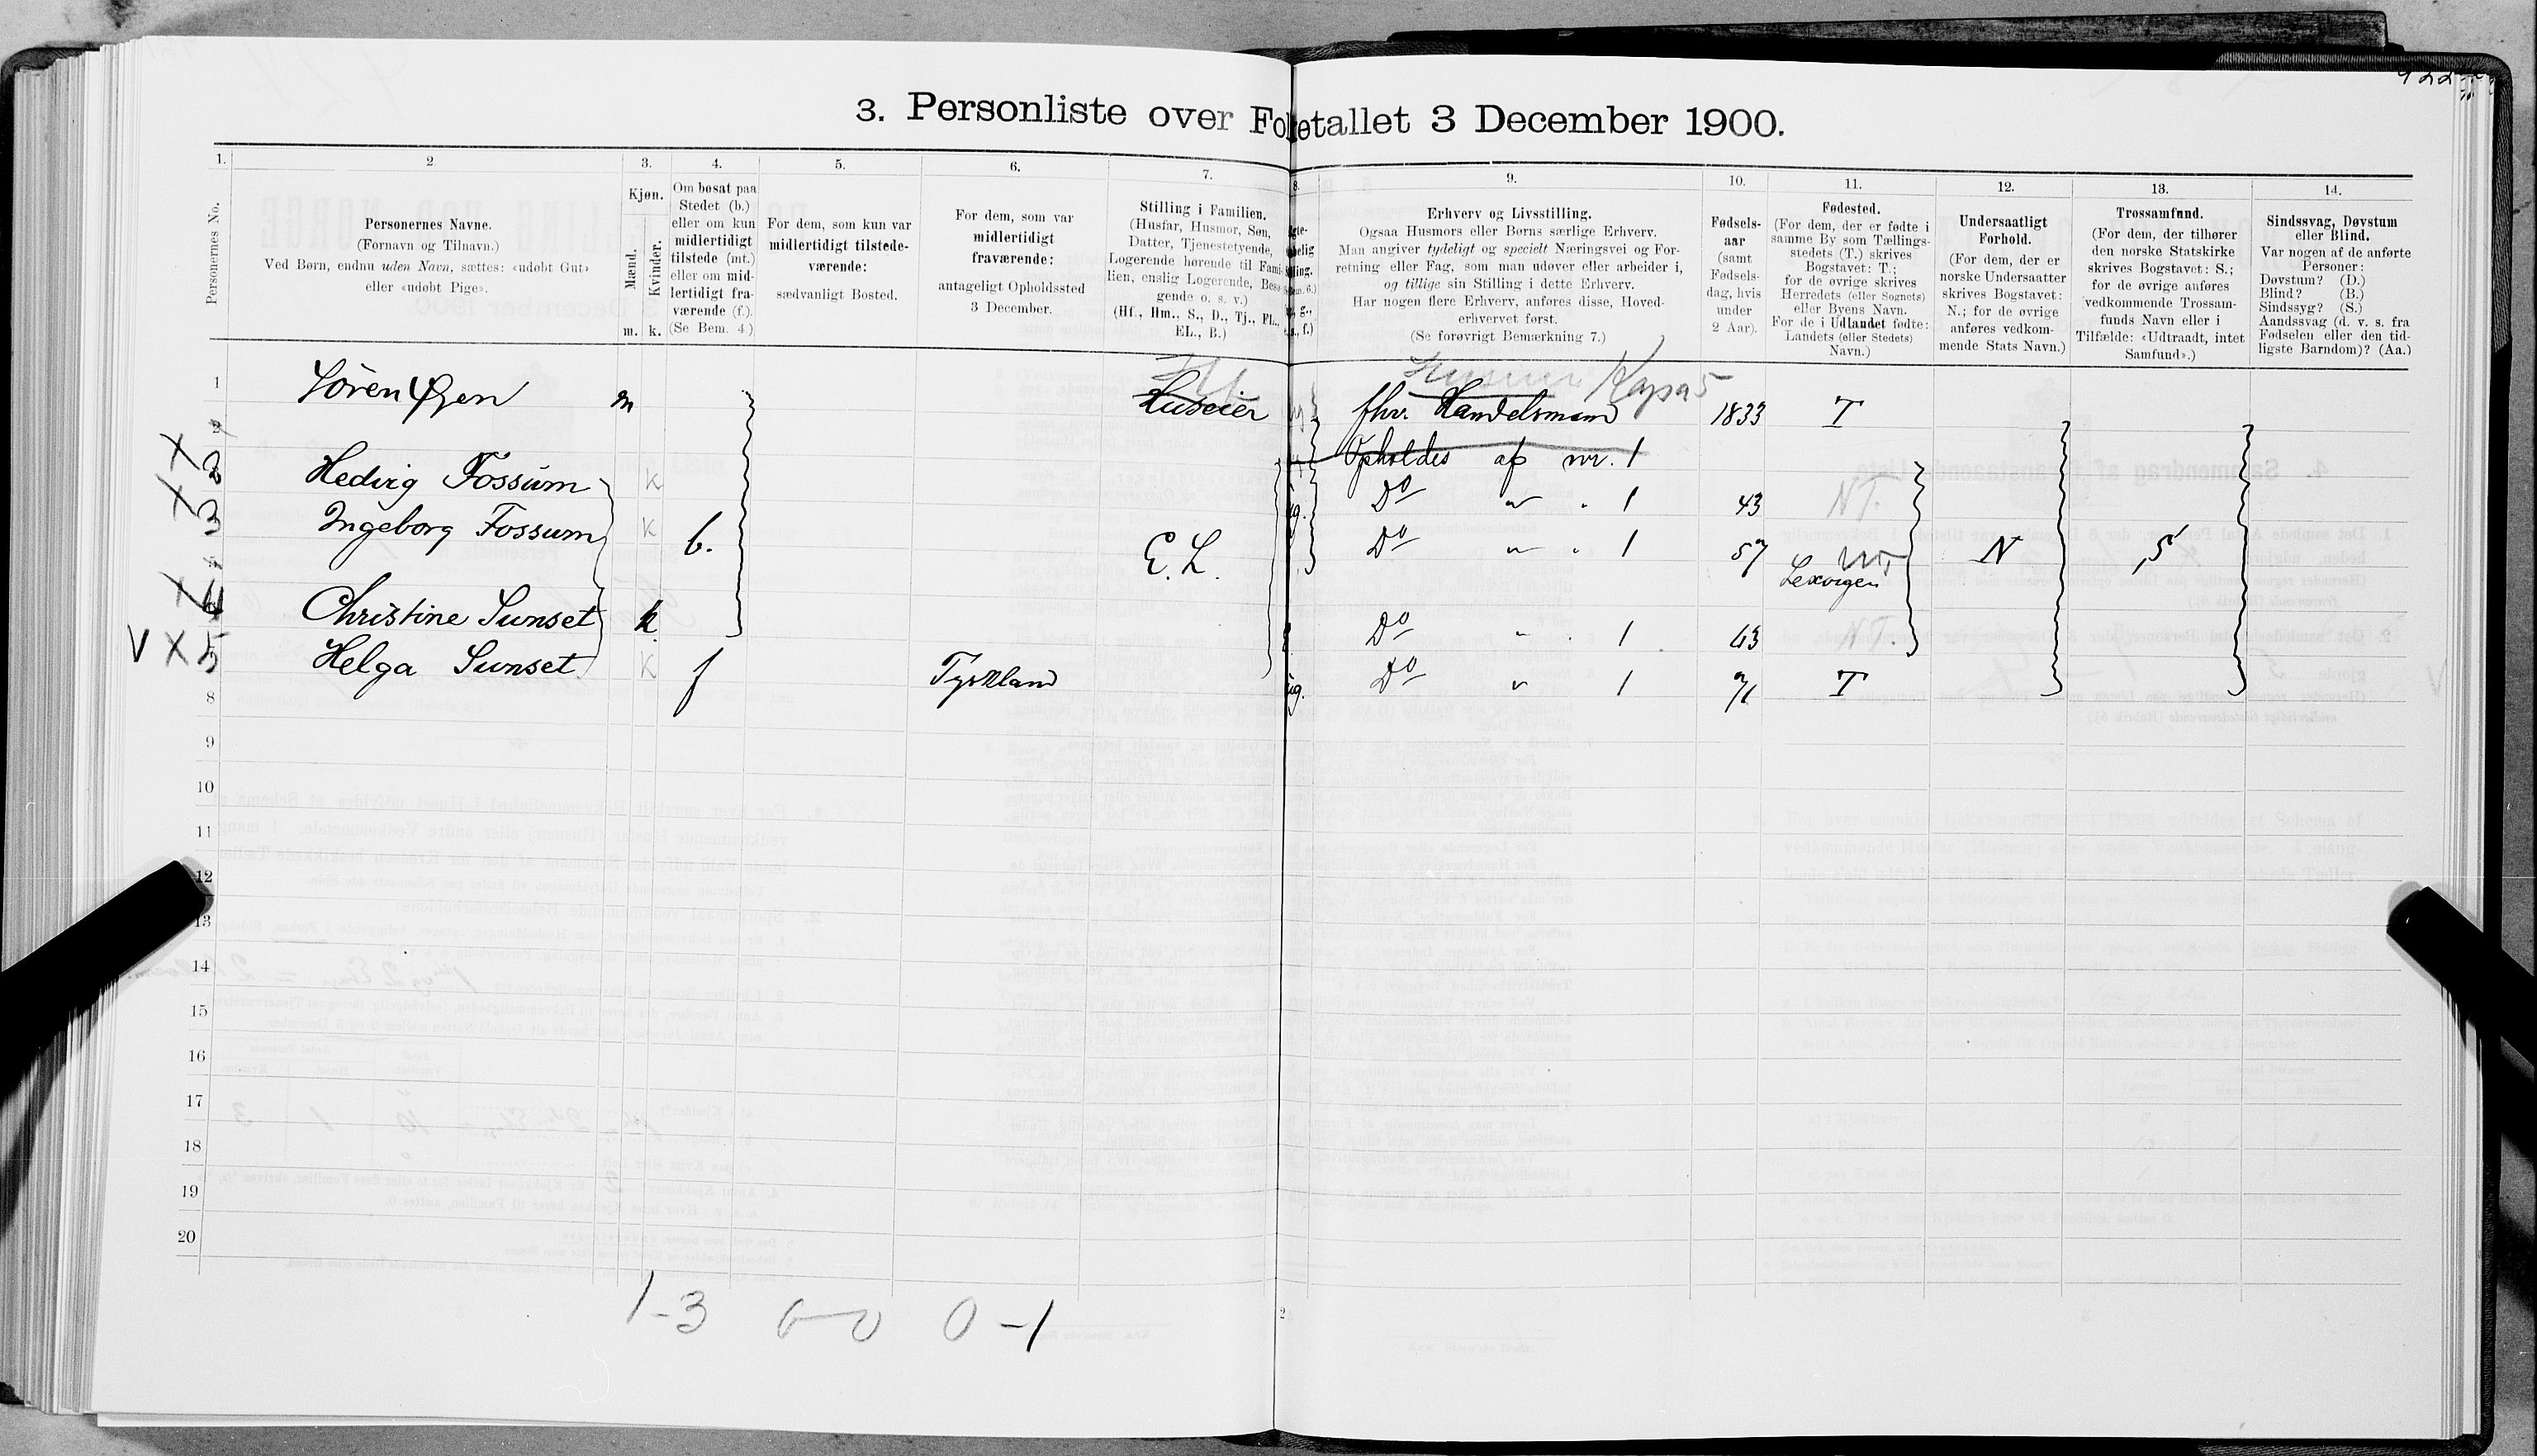 3. Personliste over Folketallet 3 December 1900.
1. 2. 3. 4. 5. 6. 7. 8. 9. 10. 11. 12. 13. 14.
Personernes No.
Personernes Navne.
(Fornavn og Tilnavn.)
Ved Børn, endnu uden Navn, sættes: «udøbt Gut»
eller «udøbt Pige».
Kjøn.
Mænd.
Kvinder.
m. k.
Om bosat paa
Stedet (b.)
eller om kun
midlertidigt
tilstede (mt.)
eller om mid-
lertidigt fra-
værende (f.).
(Se Bem. 4.)
For dem, som kun var
midlertidigt tilstede-
værende:
sædvanligt Bosted.
For dem, som var
midlertidigt
fraværende:
antageligt Opholdssted
3 December.
Stilling i Familien.
(Husfar, Husmor, Søn,
Datter, Tjenestetyende,
Logerende hørende til Fami-
lien, enslig Logerende, Besø-
gende o. s. v.)
(Hf., Hm., S., D., Tj., Fl.,
EL., B.)
Erhverv og Livsstilling.
Ogsaa Husmors eller Børns særlige Erhverv.
Man angiver tydeligt og specielt Næringsvei og For-
retning eller Fag, som man udøver eller arbeider i,
og tillige sin Stilling i dette Erhverv.
Har nogen flere Erhverv, anføres disse, Hoved-
erhvervet først.
(Se forøvrigt Bemærkning 7.)
Fødsels-
aar
(samt
Fødsels-
dag, hvis
under
2 Aar).
Fødested.
(For dem, der er fødte i
samme By som Tællings-
stedets (T.) skrives
Bogstavet: T.;
for de øvrige skrives
Herredets (eller Sognets)
eller Byens Navn.
For de i Udlandet fødte:
Landets (eller Stedets)
Navn.)
Undersaatligt
Forhold.
(For dem, der er
norske Undersaatter
skrives Bogstavet:
N.; for de øvrige
anføres vedkom-
mende Stats Navn.)
Trossamfund.
(For dem, der tilhører
den norske Statskirke
skrives Bogstavet: S.;
for de øvrige anføres
vedkommende Trossam-
funds Navn eller i
Tilfælde: «Udtraadt, intet
Samfund».)
Sindssvag, Døvstum
eller Blind.
Var nogen af de anførte
Personer:
Døvstum? (D.)
Blind? (B.)
Sindssyg? (S.)
Aandssvag (d. v. s. fra
Fødselen eller den tid-
ligste Barndom)? (Aa.)
1 Sören Øyen m Huseier fhv. Handelsmand 1833 T
Opholdes af nr. 1
X 2 Hedvig Fossum k ug. Do " " 1 43 NT.
X 3 Ingeborg Fossum k b. E. L. Do " " 1 57 Lexvigen N S
X 4 Christine Sunset k Do " " 1 43 NT.
V X 5 Helga Sunset k f Tyskland ug. Do " 1 71 T
8
9
10
11
12
13
14
15
16
17
18
19
20
1-3 0-0 0-1
2